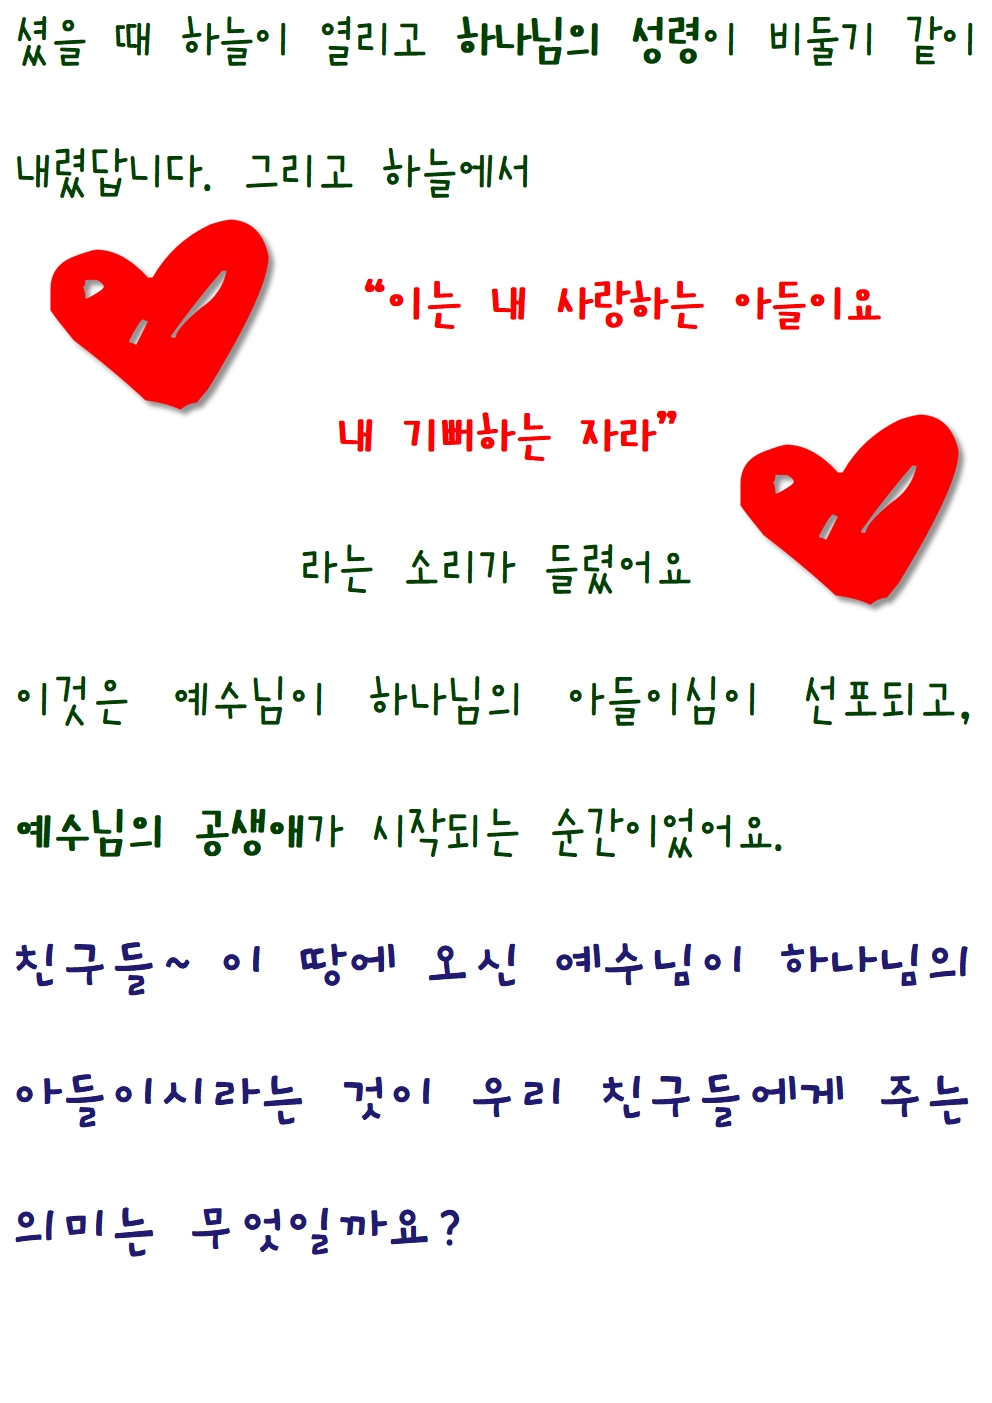 셨을 때 하늘이 열리고 하나님의 성령이 비둘기 같이
내렸답니다. 그리고 하늘에서
“이는 내 사랑하는 아들이요
내 기뻐하는 자라”
라는 소리가 들렸어요
이것은 예수님이 하나님의 아들이심이 선포되고,
예수님의 공생애가 시작되는 순간이었어요.
친구들~ 이 땅에 오신 예수님이 하나님의
아들이시라는 것이 우리 친구들에게 주는
의미는 무엇일까요?